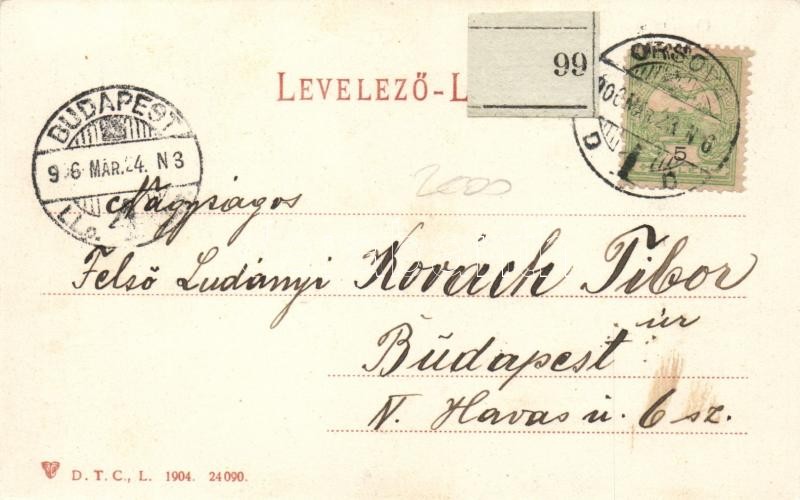 LEVELEZŐ-L
99
BUDAPEST
906 MÁR.24. N3
ORSOVA
906 MÁR.23 N 6
D D
5
2000
Nagyságos
Felső Ludányi Kovách Tibor
úr
Budapest
IV. Havas u. 6 sz.
D. T. C., L. 1904. 24090.